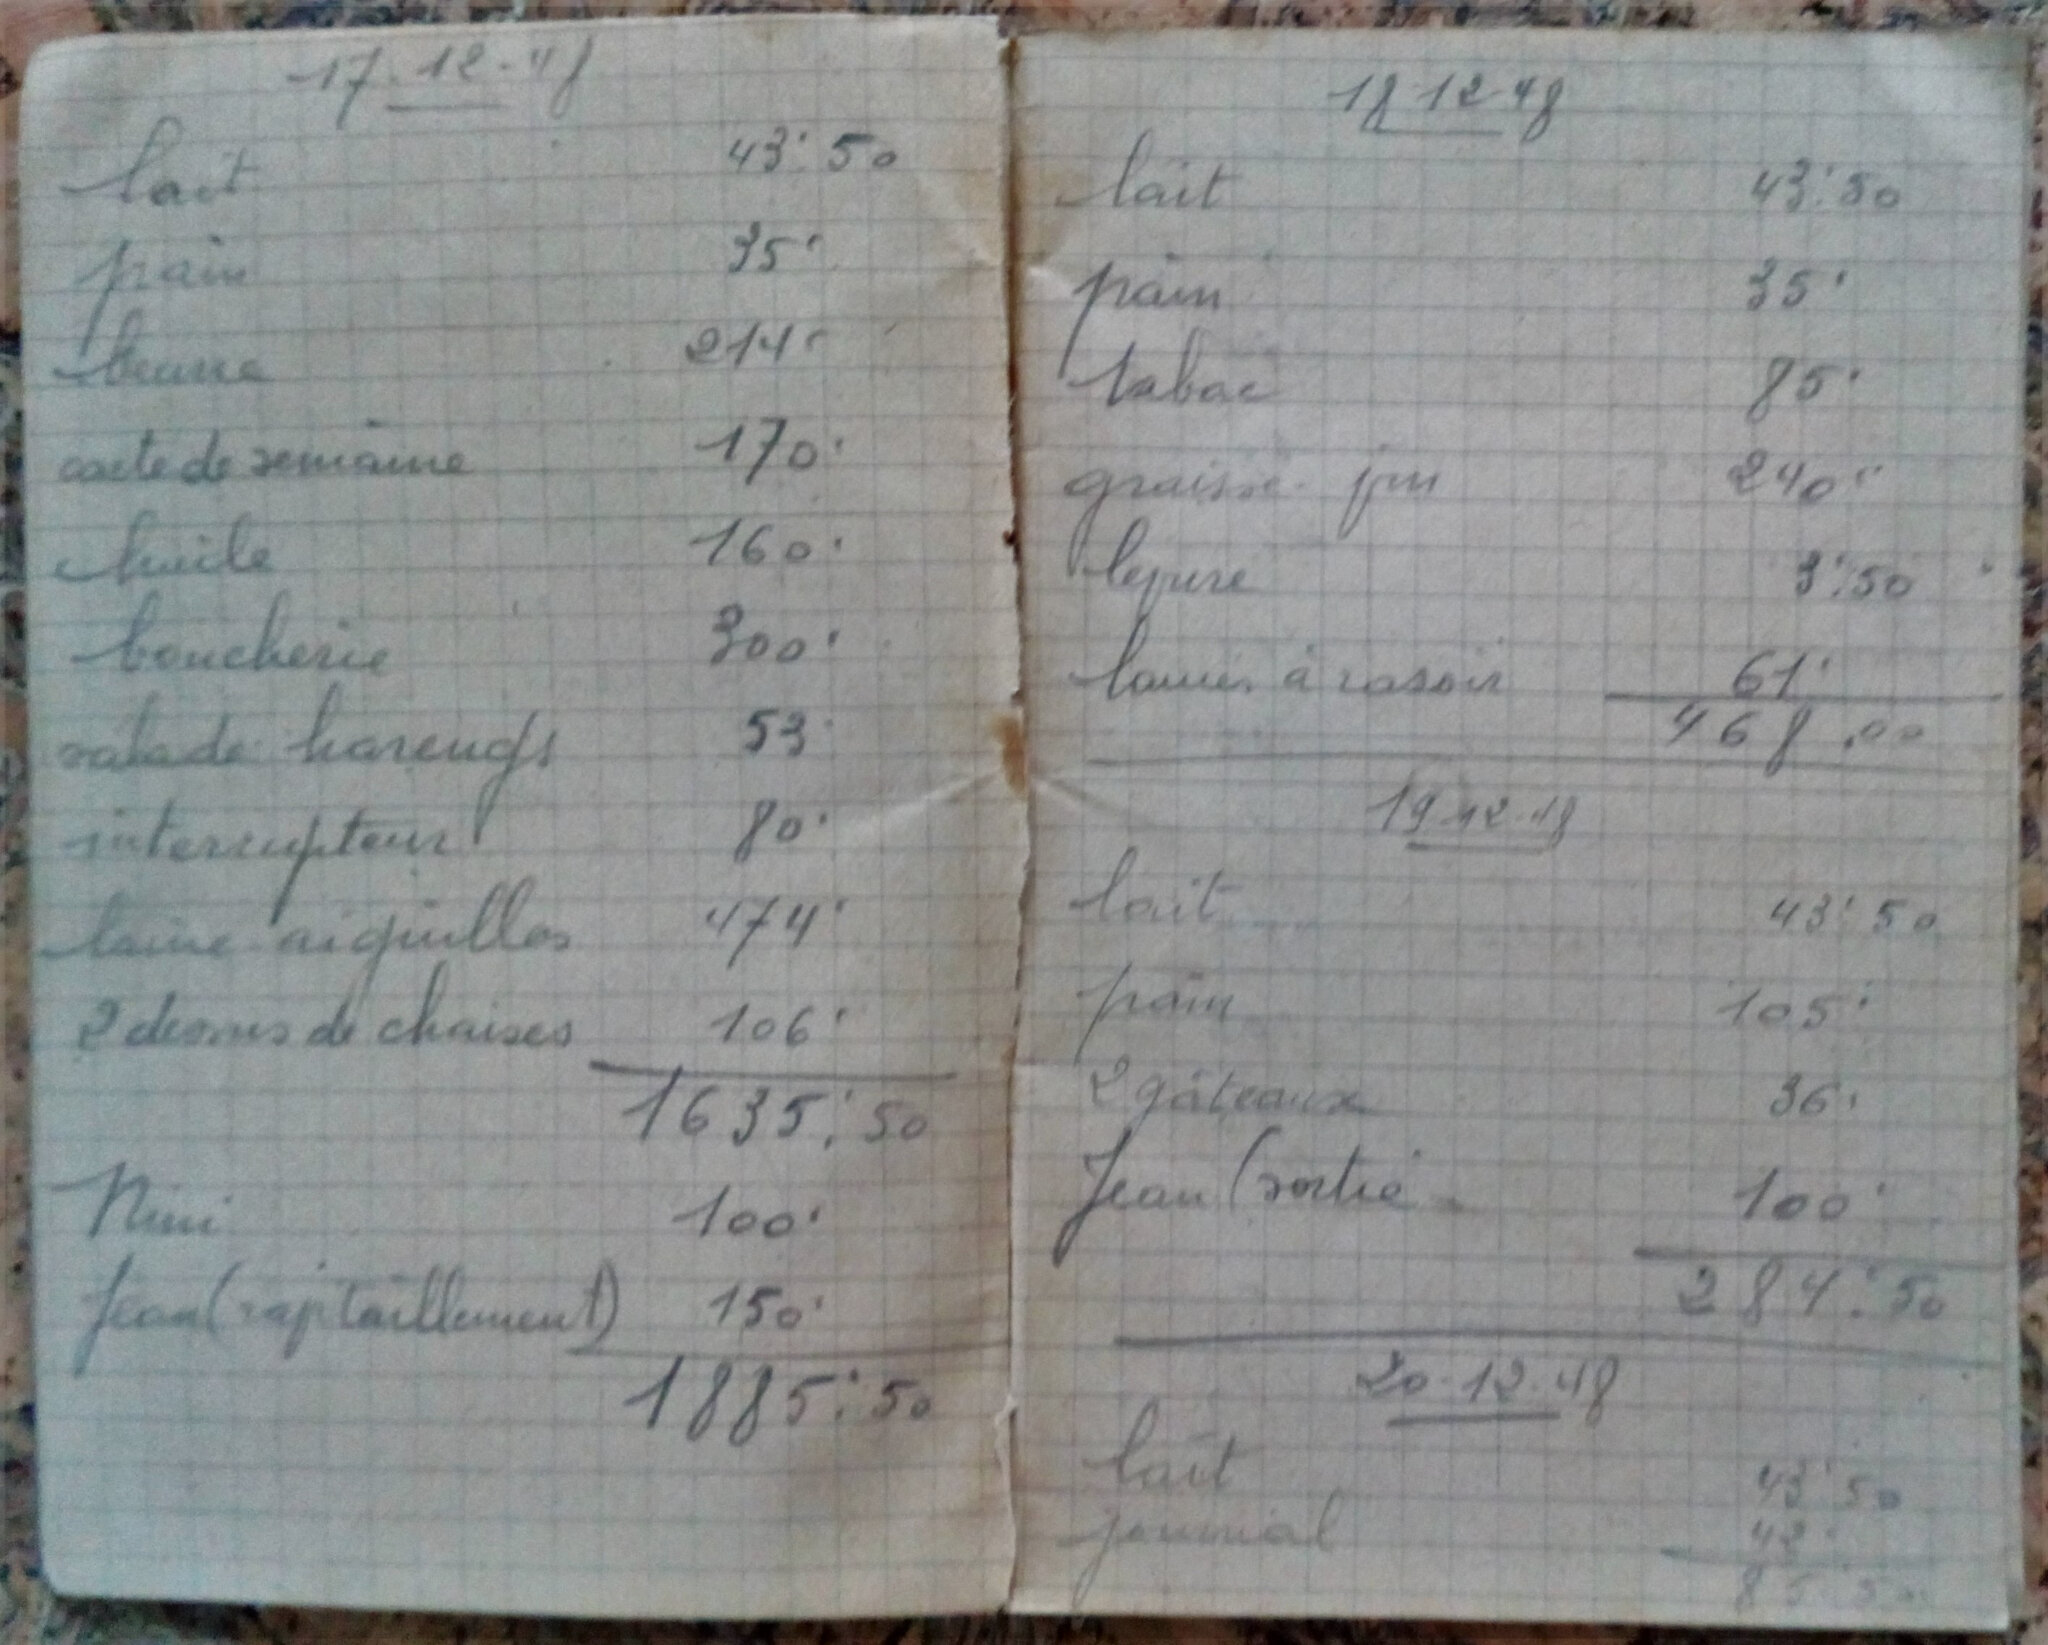 17.12.48
lait 43:50
pain 35:
beurre 214:
carte de semaine 170:
huile 160:
boucherie 300:
salade harengs 53:
interrupteur 80:
laine aiguilles 474:
2 dessus de chaises 106:
1635:50
Nini 100:
Jean ( 150:
1885:50
18.12.48
lait 43:50
pain 35:
tabac 85:
graisse 240:
levure 3:50
lames à rasoir 61:
468.00
19.12.48
lait 43:50
pain 105:
2 gâteaux 36:
Jean (sortie 100:
284:50
20.12.48
lait 43:50
journal 42:
85:50